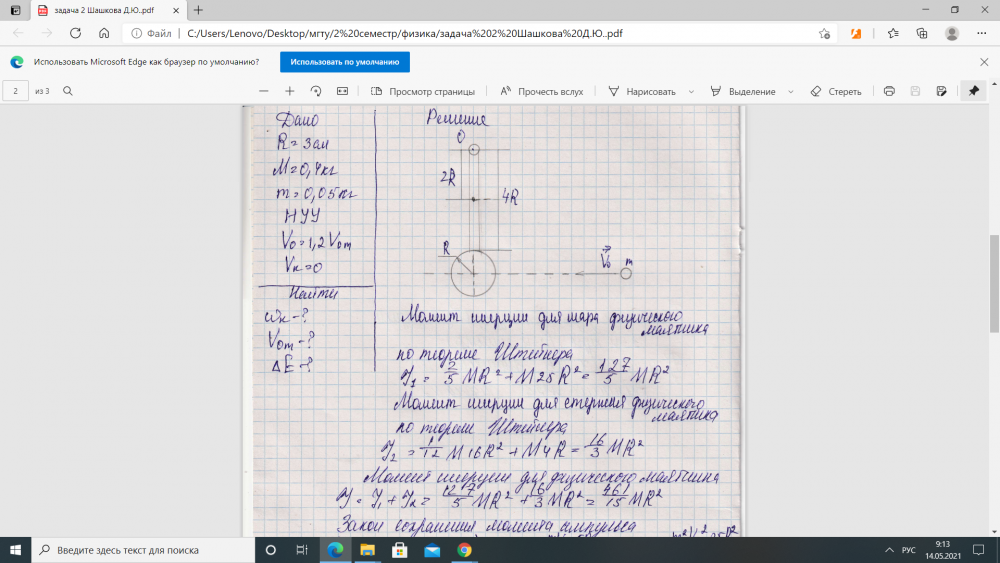 задача 2 Шашкова Д.Ю..pdf
Файл | C:/Users/Lenovo/Desktop/мгту/2%20семестр/физика/задача%202%20Шашкова%20Д.Ю..pdf
Использовать Microsoft Edge как браузер по умолчанию?
Использовать по умолчанию
2 из 3
Просмотр страницы
Прочесть вслух
Нарисовать
Выделение
Стереть
Дано
R=3см
M=0,4кг
m=0,05кг
НУУ
V₀=1,2Vom
Vк=0
Найти
ωк-?
Vom-?
ΔE-?
Решение
O
2R
4R
R
V₀
m
Момент инерции для шара физического маятника
по теореме Штейнера
J₁ = 2/5 MR² + M25R² = 127/5 MR²
Момент инерции для стержня физического маятника
по теореме Штейнера
J₂ = 1/12 M16R² + M4R = 16/3 MR²
Момент инерции для физического маятника
J = J₁ + J₂ = 127/5 MR² + 16/3 MR² = 461/15 MR²
Закон сохранения момента импульса
Введите здесь текст для поиска
РУС
9:13
14.05.2021